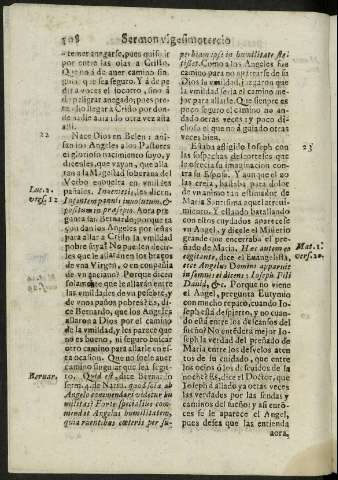 508 Sermon vigesimotercio
a temer anegarse, pues quiso ir
por entre las olas a Cristo.
Que no a de auer camino sin-
gular que sea seguro. Y a de pe
dir las de los otro, sino
pelígrar anegado, pues pre-
tendio llegar a Cristo por don-
de nadie a asta otra vez asta
alli.
22 Nace Dios en Belen: aui-
san los Angeles a los Pastores
el glorioso nacimiento suyo, y
diceles, que vayan, que allan
a la Magestad soberana del
Verbo enbuelta en vmildes
Luc. 2. vers. 12 pañales. Inuenietis, les dicen,
Infantem pannis inuolutum, &
positum in presepio. Aora pre-
gunta san Bernardo, porque no
dan los Angeles por señas
para allar a Cristo la vmildad
pobre suya? No pueden decir-
les que le allaran en los braços
de vna Virgen, o en conpañia
de vn anciano? Porque dicen
solamente que le allaran entre
las vmildades de vn pesebre, y
de vnos paños pobres? Es, di-
ce Bernardo, que los Angeles
allaron a Dios por el camino
de la vmildad, y les parece que
no es bueno, ni seguro buscar
otro camino para allarle en es-
ta ocasion. Que no suele auer
camino singular que sea segu-
Bernar. ro. Quid est, dice Bernardo
serm. 4. de Natiu. quod sola ab
Angelo commendari videtur hu
militas? Forte specialius com-
mendat Angelus humilitatem,
quia ruentibus cæteris per su-
perbiam ipse in humilitate ste-
tisset. Como a los Angeles fue
camino para no apartarse de su
Dios la vmildad, juzgaron que
la vmildad seria el camino me-
jor para allarle. Que sienpre es
poco seguro el camino no an-
dado otras veces: ay poco di-
choso el que no a guiado otras
veces bien.
23 Estaba afligido Joseph con
las sospechas del cortas que
la imaginacion formaba con-
tra su Esposa. Y aun que el
las creia, bastaba para dolor
de vn animo tan estimador de
Maria Santisima aquel atreui-
miento. Y estando batallando
con estos cuydados aparecele
vn Angel, y dicele el Misterio
grande que encerraba el pre-
Mat. 1. vers. 20. ñado de Maria. Hæc autem eo
cogitante, dice el Euangelista,
ecce Angelus Domini apparuit
in somnis ei dicens: Joseph Fili
Dauid, &c. Porque no viene
el Angel, pregunta Eutymio
con mucho reparo, cuando Jo-
seph està despierto, y no cuan-
do està entre los descansos del
sueño? No entendiera mejor Jo-
seph la verdad del preñado de
Maria entre los desvelos aten-
tos de su cuidado, que entre
los ocios ociosos de vna
noche? Es, dice el Doctor, que
Joseph a allado ya otras veces
las verdades por las sendas y
caminos del sueño; y asi entõ-
ces se le aparece el Angel,
pues desea que las entienda
aora,